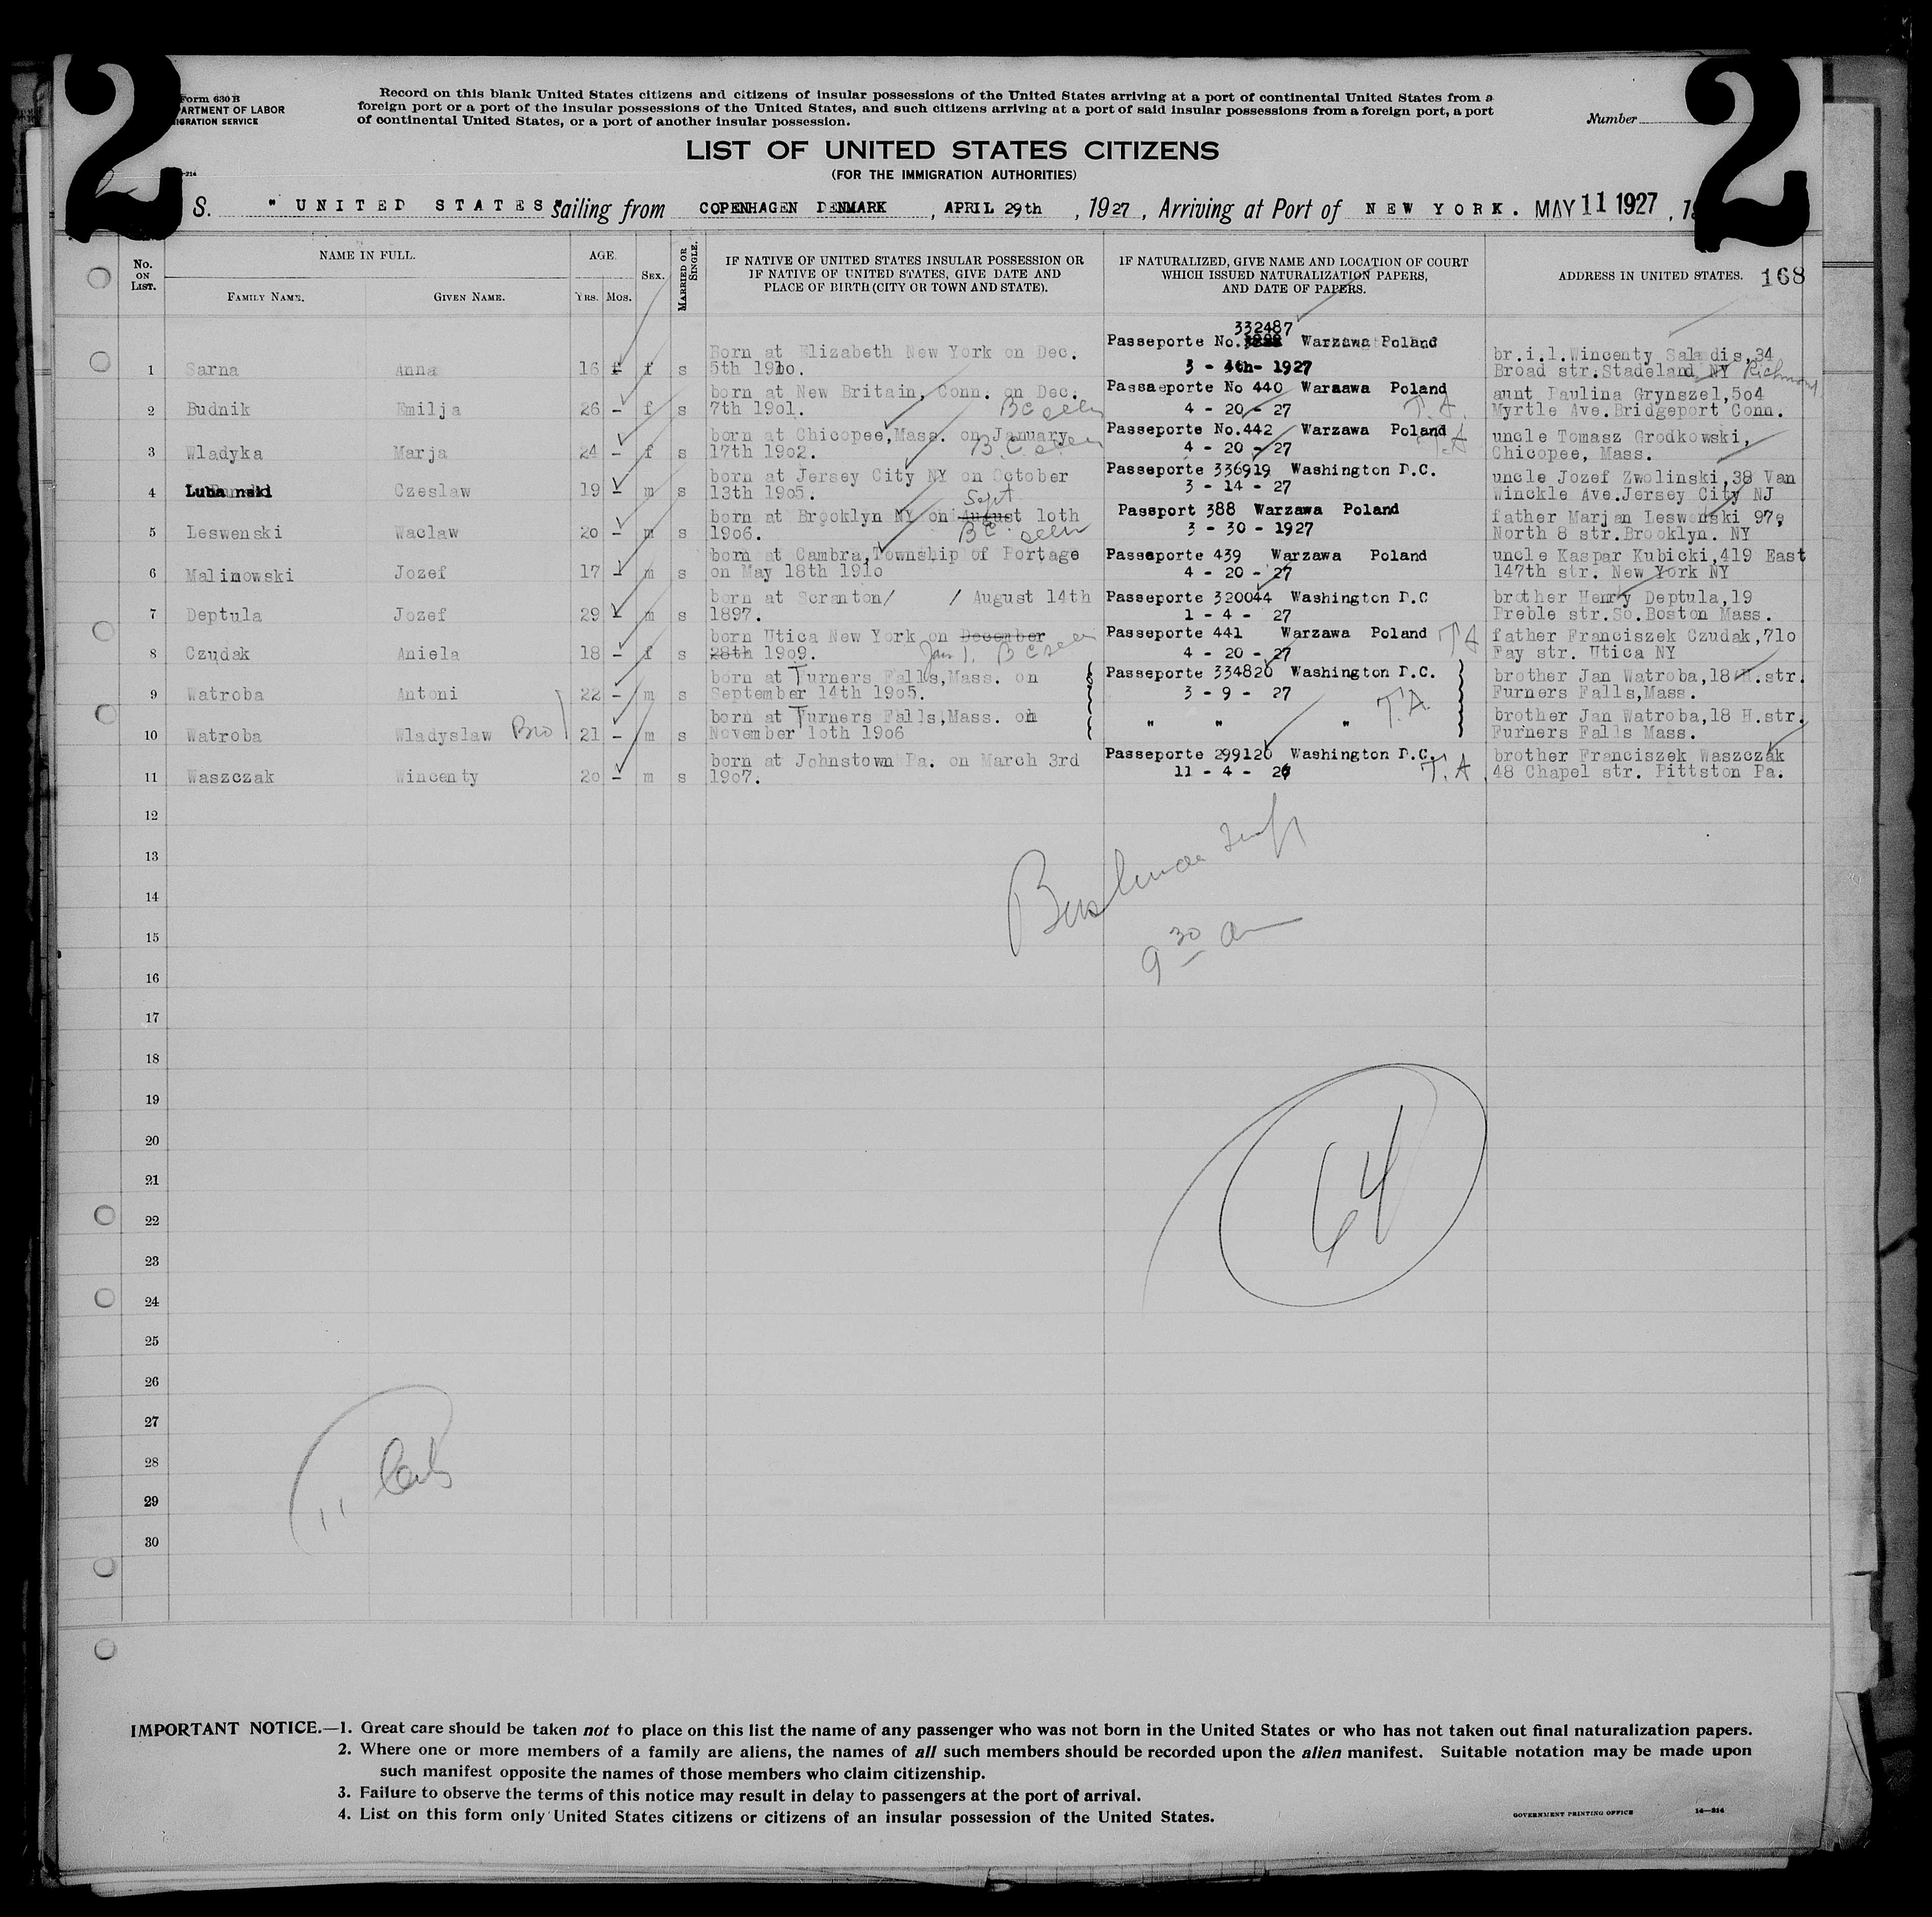 2 2
Form 630 B
ARTMENT OF LABOR
IGRATION SERVICE
Record on this blank United States citizens and citizens of insular possessions of the United States arriving at a port of continental United States from a
foreign port or a port of the insular possessions of the United States, and such citizens arriving at a port of said insular possessions from a foreign port, a port
of continental United States, or a port of another insular possession.
Number
LIST OF UNITED STATES CITIZENS
(FOR THE IMMIGRATION AUTHORITIES)
-214
S. "UNITED STATES" Sailing from COPENHAGEN DENMARK, APRIL 29th, 1927, Arriving at Port of NEW YORK. MAY 11 1927, 1
No. ON LIST.
NAME IN FULL.
FAMILY NAME. GIVEN NAME.
AGE.
YRS. MOS.
SEX.
MARRIED OR SINGLE.
IF NATIVE OF UNITED STATES INSULAR POSSESSION OR
IF NATIVE OF UNITED STATES, GIVE DATE AND
PLACE OF BIRTH (CITY OR TOWN AND STATE).
IF NATURALIZED, GIVE NAME AND LOCATION OF COURT
WHICH ISSUED NATURALIZATION PAPERS,
AND DATE OF PAPERS.
ADDRESS IN UNITED STATES. 168
332487
Born at Elizabeth New York on Dec. Passeporte No. Warzawa Poland br.i.l.Wincenty Saladis,34
1 Sarna Anna 16 f s 5th 1910. 3 - 4th- 1927 Broad str.Stadeland NY Richmond
born at New Britain, Conn. on Dec. Passaeporte No 440 Waraawa Poland aunt Paulina Grynszel,5o4
2 Budnik Emilja 26 - f s 7th 19o1. BC seen 4 - 20 - 27 T.A. Myrtle Ave.Bridgeport Conn.
born at Chicopee,Mass. on January Passeporte No.442 Warzawa Poland uncle Tomasz Grodkowski,
3 Wladyka Marja 24 - f s 17th 19o2. B.C. seen 4 - 20 - 27 T.A Chicopee, Mass.
born at Jersey City NY on October Passeporte 336919 Washington D.C. uncle Jozef Zwolinski,38 Van
4 Lubanski Czeslaw 19 - m s 13th 19o5. 3 - 14 - 27 Winckle Ave.Jersey City NJ
Sept
born at Brooklyn NY on August 1oth Passport 388 Warzawa Poland father Marjan Leswenski 97,
5 Leswenski Waclaw 2o - m s 19o6. BC seen 3 - 30 - 1927 North 8 str.Brooklyn. NY
born at Cambra,Township of Portage Passeporte 439 Warzawa Poland uncle Kaspar Kubicki,419 East
6 Malinowski Jozef 17 - m s on May 18th 191o 4 - 20 - 27 147th str. New York NY
born at Scranton/ / August 14th Passeporte 320044 Washington D.C brother Henry Deptula,19
7 Deptula Jozef 29 - m s 1897. 1 - 4 - 27 Preble str.So.Boston Mass.
born Utica New York on December Passeporte 441 Warzawa Poland T A father Franciszek Czudak,71o
8 Czudak Aniela 18 - f s 28th 19o9. Jan 1. BC seen 4 - 20 - 27 Fay str. Utica NY
born at Turners Falls,Mass. on Passeporte 334820 Washington D.C. brother Jan Watroba,18 H.str.
9 Watroba Antoni 22 - m s September 14th 19o5. 3 - 9 - 27 T.A. Furners Falls,Mass.
born at Turners Falls,Mass. on " " " brother Jan Watroba,18 H.str.
10 Watroba Wladyslaw Bro 21 - m s November 1oth 19o6 Furners Falls Mass.
born at Johnstown Pa. on March 3rd Passeporte 299120 Washington D.C. brother Franciszek Waszczak
11 Waszczak Wincenty 2o - m s 19o7. 11 - 4 - 26 T.A 48 Chapel str. Pittston Pa.
12
13
14
15
9 30 am
16
17
18
19
20
64
21
22
23
24
25
26
27
28
11
29
30
IMPORTANT NOTICE.—1. Great care should be taken not to place on this list the name of any passenger who was not born in the United States or who has not taken out final naturalization papers.
2. Where one or more members of a family are aliens, the names of all such members should be recorded upon the alien manifest. Suitable notation may be made upon
such manifest opposite the names of those members who claim citizenship.
3. Failure to observe the terms of this notice may result in delay to passengers at the port of arrival.
4. List on this form only United States citizens or citizens of an insular possession of the United States.
GOVERNMENT PRINTING OFFICE 14—214